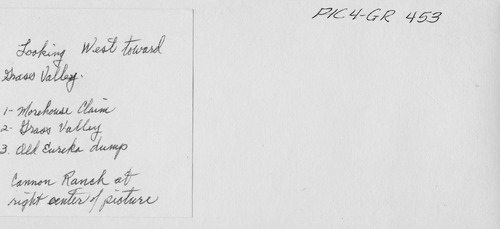 PIC4-GR 453
Looking West toward
Grass Valley.
1- Morehouse Claim
2- Grass Valley
3. Old Eureka dump
Cannon Ranch at
right center of picture